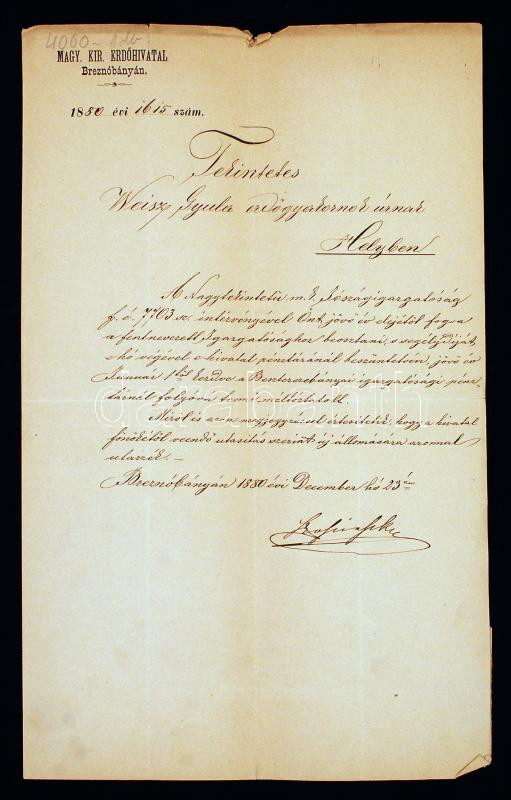 MAGY. KIR. ERDŐHIVATAL
Breznóbányán.
1880 évi 1615 szám.
Tekintetes
Weisz Gyula erdőgyakornok úrnak
Helyben
A Nagytekintetü m. k. Jószágigazgatóság
f. é. 7703 sz. intézvényével Önt jövő év elejétől fogva
a fentnevezett Igazgatósághoz beosztani, s segélydíját
e hó végével e hivatal pénztáránál beszüntetvén, jövő év
Január 1től kezdve a Beszterczebányai igazgatósági pénz-
tárnál folyóvá tenni méltóztatott.
Miről is azon megjegyzéssel értesítetik, hogy a hivatal
főnökétől veendő utasítás szerint új állomására azonnal
utazzék. —
Breznóbányán 1880 évi December hó 23án
darabanth